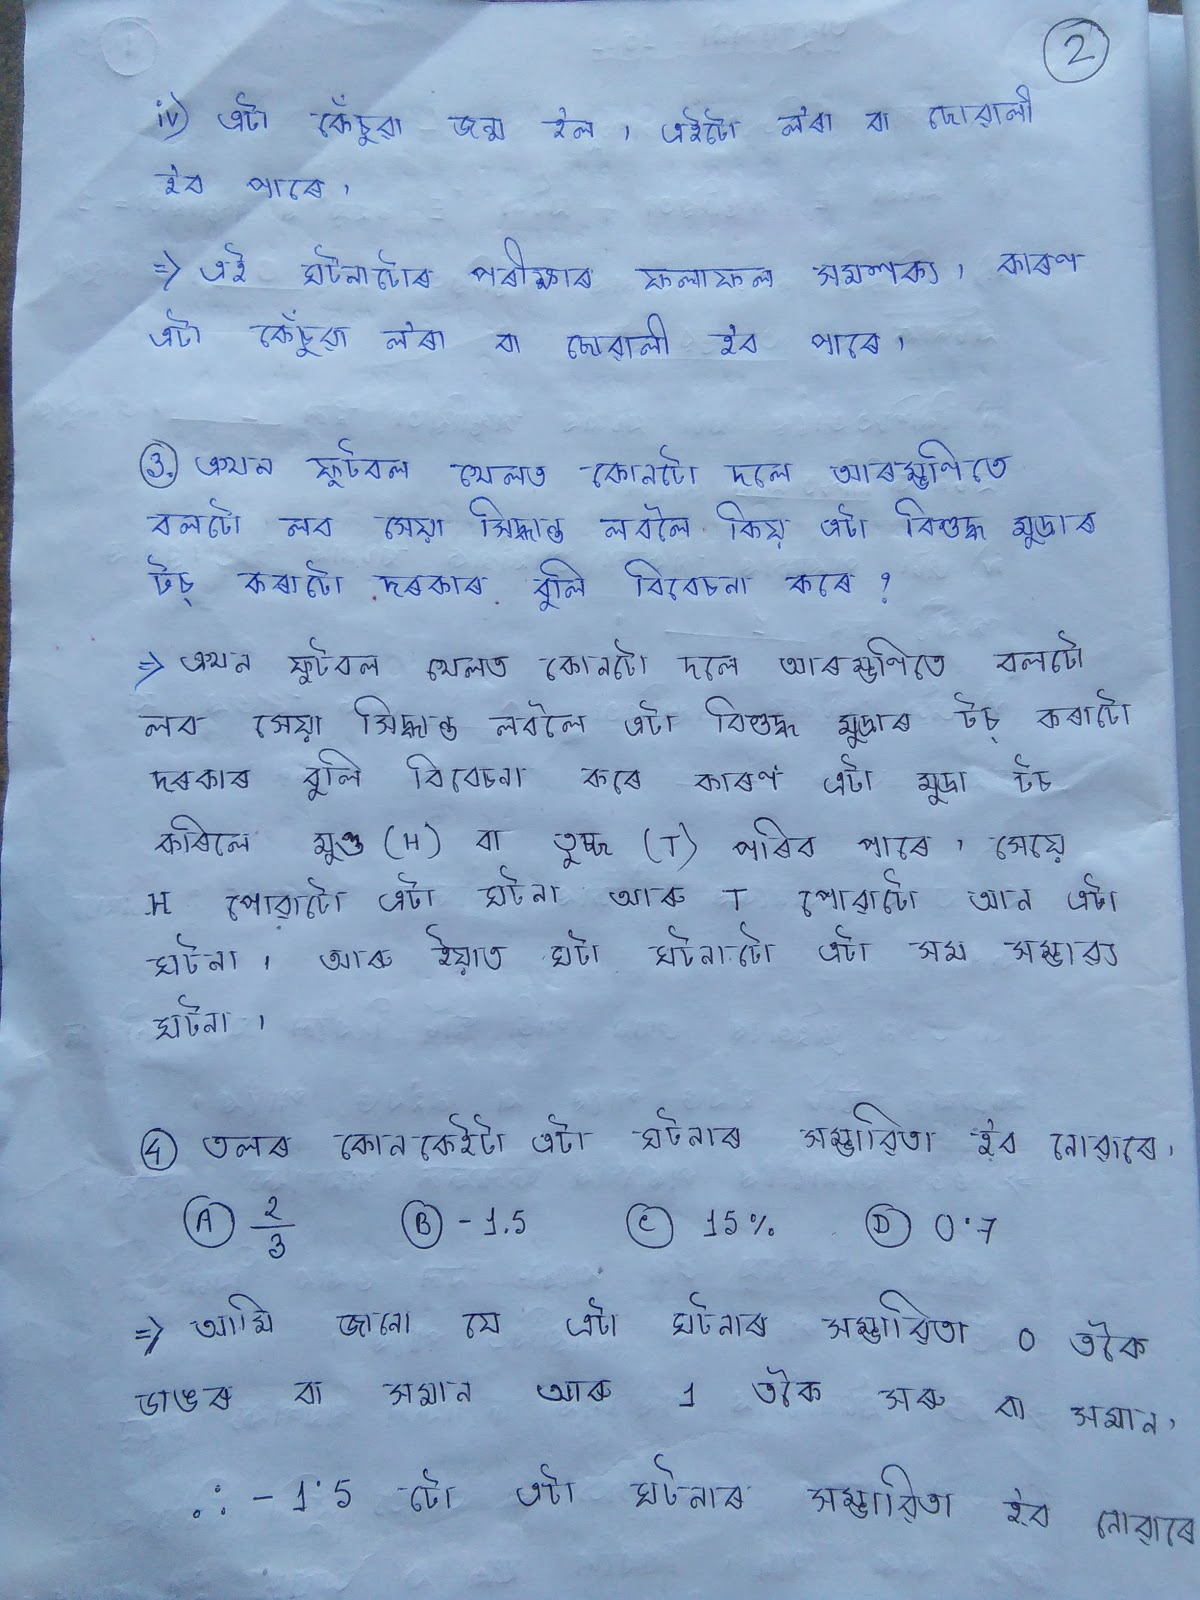 2
iv) এটা কেঁচুৱা জন্ম হ'ল। এইটো ল'ৰা বা ছোৱালী
হ'ব পাৰে।
=> এই ঘটনাটোৰ পৰীক্ষাৰ ফলাফল সমশক্য। কাৰণ
এটা কেঁচুৱা ল'ৰা বা ছোৱালী হ'ব পাৰে।
3. এখন ফুটবল খেলত কোনটো দলে আৰম্ভণিতে
বলটো লব সেয়া সিদ্ধান্ত লবলৈ কিয় এটা বিশুদ্ধ মুদ্ৰাৰ
টচ্ কৰাটো দৰকাৰ বুলি বিবেচনা কৰে ?
=> এখন ফুটবল খেলত কোনটো দলে আৰম্ভণিতে বলটো
লব সেয়া সিদ্ধান্ত লবলৈ এটা বিশুদ্ধ মুদ্ৰাৰ টচ্ কৰাটো
দৰকাৰ বুলি বিবেচনা কৰে কাৰণ এটা মুদ্ৰা টচ
কৰিলে মুণ্ড (H) বা পুচ্ছ (T) পৰিব পাৰে। সেয়ে
H পোৱাটো এটা ঘটনা আৰু T পোৱাটো আন এটা
ঘটনা। আৰু ইয়াত ঘটা ঘটনাটো এটা সম সম্ভাৱ্য
ঘটনা।
4 তলৰ কোনকেইটা এটা ঘটনাৰ সম্ভাৱিতা হ'ব নোৱাৰে।
A 2/3 B -1.5 C 15% D 0.7
=> আমি জানো যে এটা ঘটনাৰ সম্ভাৱিতা 0 তকৈ
ডাঙৰ বা সমান আৰু 1 তকৈ সৰু বা সমান।
∴ -1.5 টো এটা ঘটনাৰ সম্ভাৱিতা হ'ব নোৱাৰে